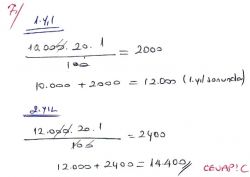 7/
1.Yıl
10.000. 20. 1
100
= 2000
10.000 + 2000 = 12.000 (1.yıl sonunda)
2.YIL
12.000. 20. 1
100
= 2400
12.000 + 2400 = 14.400
CEVAP: C